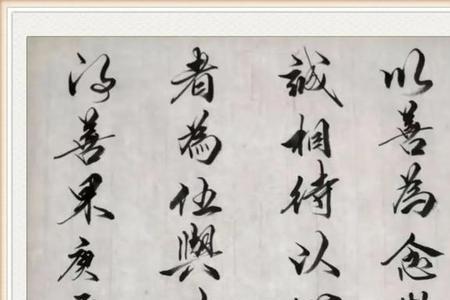 以善為念
誠相待以
者為伍與
得善果庚